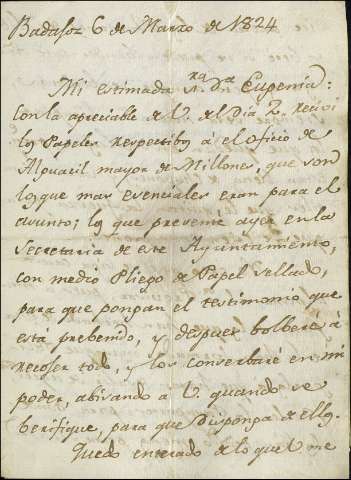 Badajoz 6 de Marzo de 1824
Mi estimada S.ra D.a Eugenia:
Con la apreciable de V. del Dia 2. recivi
los Papeles respectibos á el Oficio de
Alguacil mayor de Millones, que son
los que mas esenciales eran para el
asunto; los que presenté ayer en la
Secretaria de este Ayuntamiento,
con medio Pliego de Papel sellado,
para que pongan el testimonio que
está prebenido, y despues bolberé á
recoser todo, y los conserbaré en mi
poder, abisando á V. quando se
berifique, para que Disponga de ellos.
Quedo enterado de lo que V. me